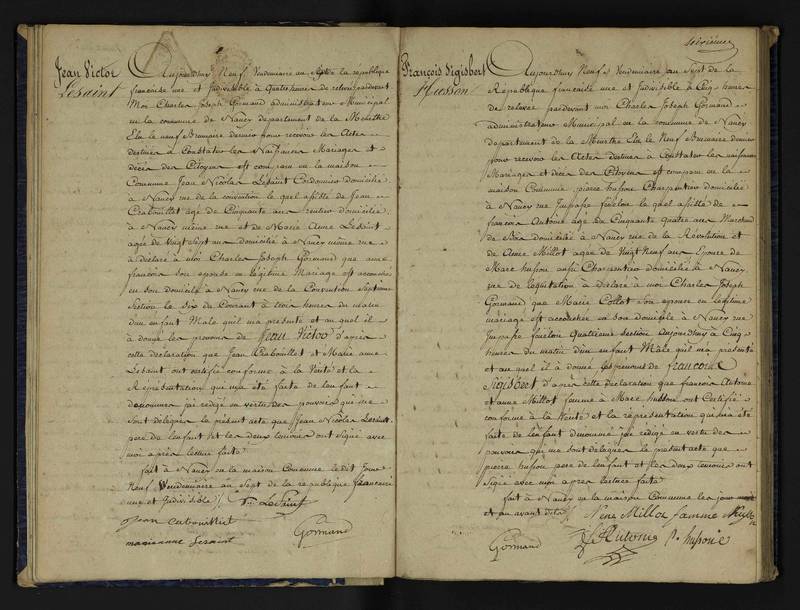 Jean Victor
Lesaint
Aujourdhuy Neuf Vendemiaire an Sept de la republique
francaise une et Indivisible à Quatre heures de relevée pardevant
Moi Charles Joseph Gormand administrateur Municipal
en la commune de Nancy departement de la Meurthe
Elu le neuf Brumaire dernier pour recevoir les Actes
destinés à Constater les Naissances Mariages et
décès des Citoyens est comparu en la maison
Commune Jean Nicolas Lesaint Cordonnier domicilié
à Nancy rue de la convention le quel assisté de Jean
Cabouillet agé de Cinquante ans rentier domicilié
à Nancy même rue et de Marie Anne Lesaint
agée de Vingt Sept ans domicilié à Nancy même rue
a déclaré à moi Charles Joseph Gormand que anne
francois son epouse en légitime Mariage est accouchée
en son domicile à Nancy rue de la Convention Septieme
Section le Six du Courant à trois heures du matin
d'un enfant Male qu'il ma presenté et au quel il
a donné les prenoms de Jean Victor d'après
cette declaration que Jean Cabouillet et Marie anne
Lesaint ont certifié conforme à la Verité et la
Représentation qui ma été faite de l'enfant
denommé j'ai redigé en vertu des pouvoirs qui me
sont délegués le présent acte que Jean Nicolas Lesaint
pere de l'enfant et les deux temoins ont signé avec
moi après lecture faite
fait à Nancy en la maison Commune ledit jour
Neuf Vendemiaire an Sept de la republique francaise
une et Indivisible Lesaint
Jean Cabouillet
marie anne Lesaint Gormand
François Sigisbert
Husson
Aujourdhuy Neuf Vendemiaire an Sept de la
Republique francaise une et Indivisible à Cinq heures
de relevée pardevant moi Charles Joseph Gormand
administrateur Municipal en la commune de Nancy
departement de la Meurthe Elu le Neuf Brumaire dernier
pour recevoir les Actes destinés à Constater les naissances
Mariages et décès des Citoyens est comparu en la
maison Commune pierre husson Charpentier domicilié
à Nancy rue Impasse fénélon le quel assisté de
francois Antoine agé de Cinquante quatre ans Marchand
de Bois domicilié à Nancy rue de la Révolution et
de Anne Millot agée de Vingt Neuf ans Epouse de
Marc husson aussi Charpentier domicilié à Nancy
rue de legislation a déclaré à moi Charles Joseph
Gormand que Marie Collot son epouse en legitime
mariage est accouchée en son domicile à Nancy rue
Impasse fénélon Quatrieme section aujourdhuy à Cinq
heures du matin d'un enfant Male qu'il ma presenté
et au quel il a donné les prenoms de francois
Sigisbert d'après cette declaration que francois Antoine
et anne Millot femme à Marc husson ont Certifié
conforme à la Verité et la représentation qui ma été
faite de l'enfant denommé j'ai redigé en vertu des
pouvoirs qui me sont délegués le present acte que
pierre husson pere de l'enfant et les deux temoins ont
Signé avec moi après lecture faite
fait à Nancy en la maison Commune les jour
et an avant dits Millot famme
Gormand Antoine P. husson